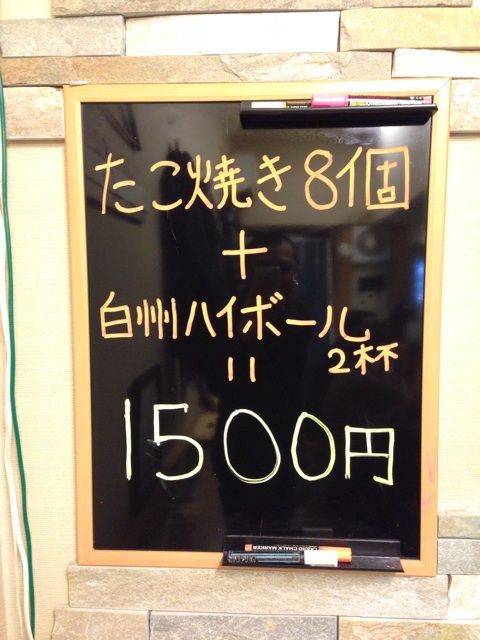 たこ焼き8個
+
白州ハイボール
2杯
=
1500円
LIQUID CHALK MARKER